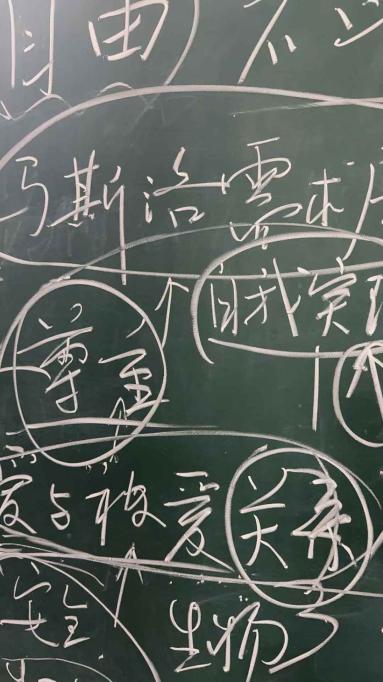 自由
马斯洛需求
自我实现
尊重
爱与被爱 关系
安全 生物